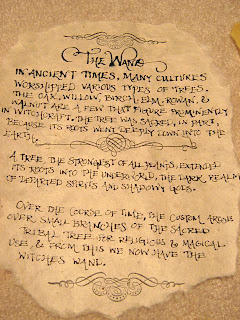 The Wand
In ancient times, many cultures
worshipped various types of trees.
The oak, willow, birch, elm, rowan, &
walnut are a few that figure prominently
in witchcraft. The tree was sacred, in part,
because its roots went deeply down into the
earth.
A tree, the strongest of all plants, extended
its roots into the underworld, the dark realm
of departed spirits and shadowy gods.
Over the course of time, the custom arose
over small branches of the sacred
tribal tree for religious & magical
use, & from this we now have the
witches wand.